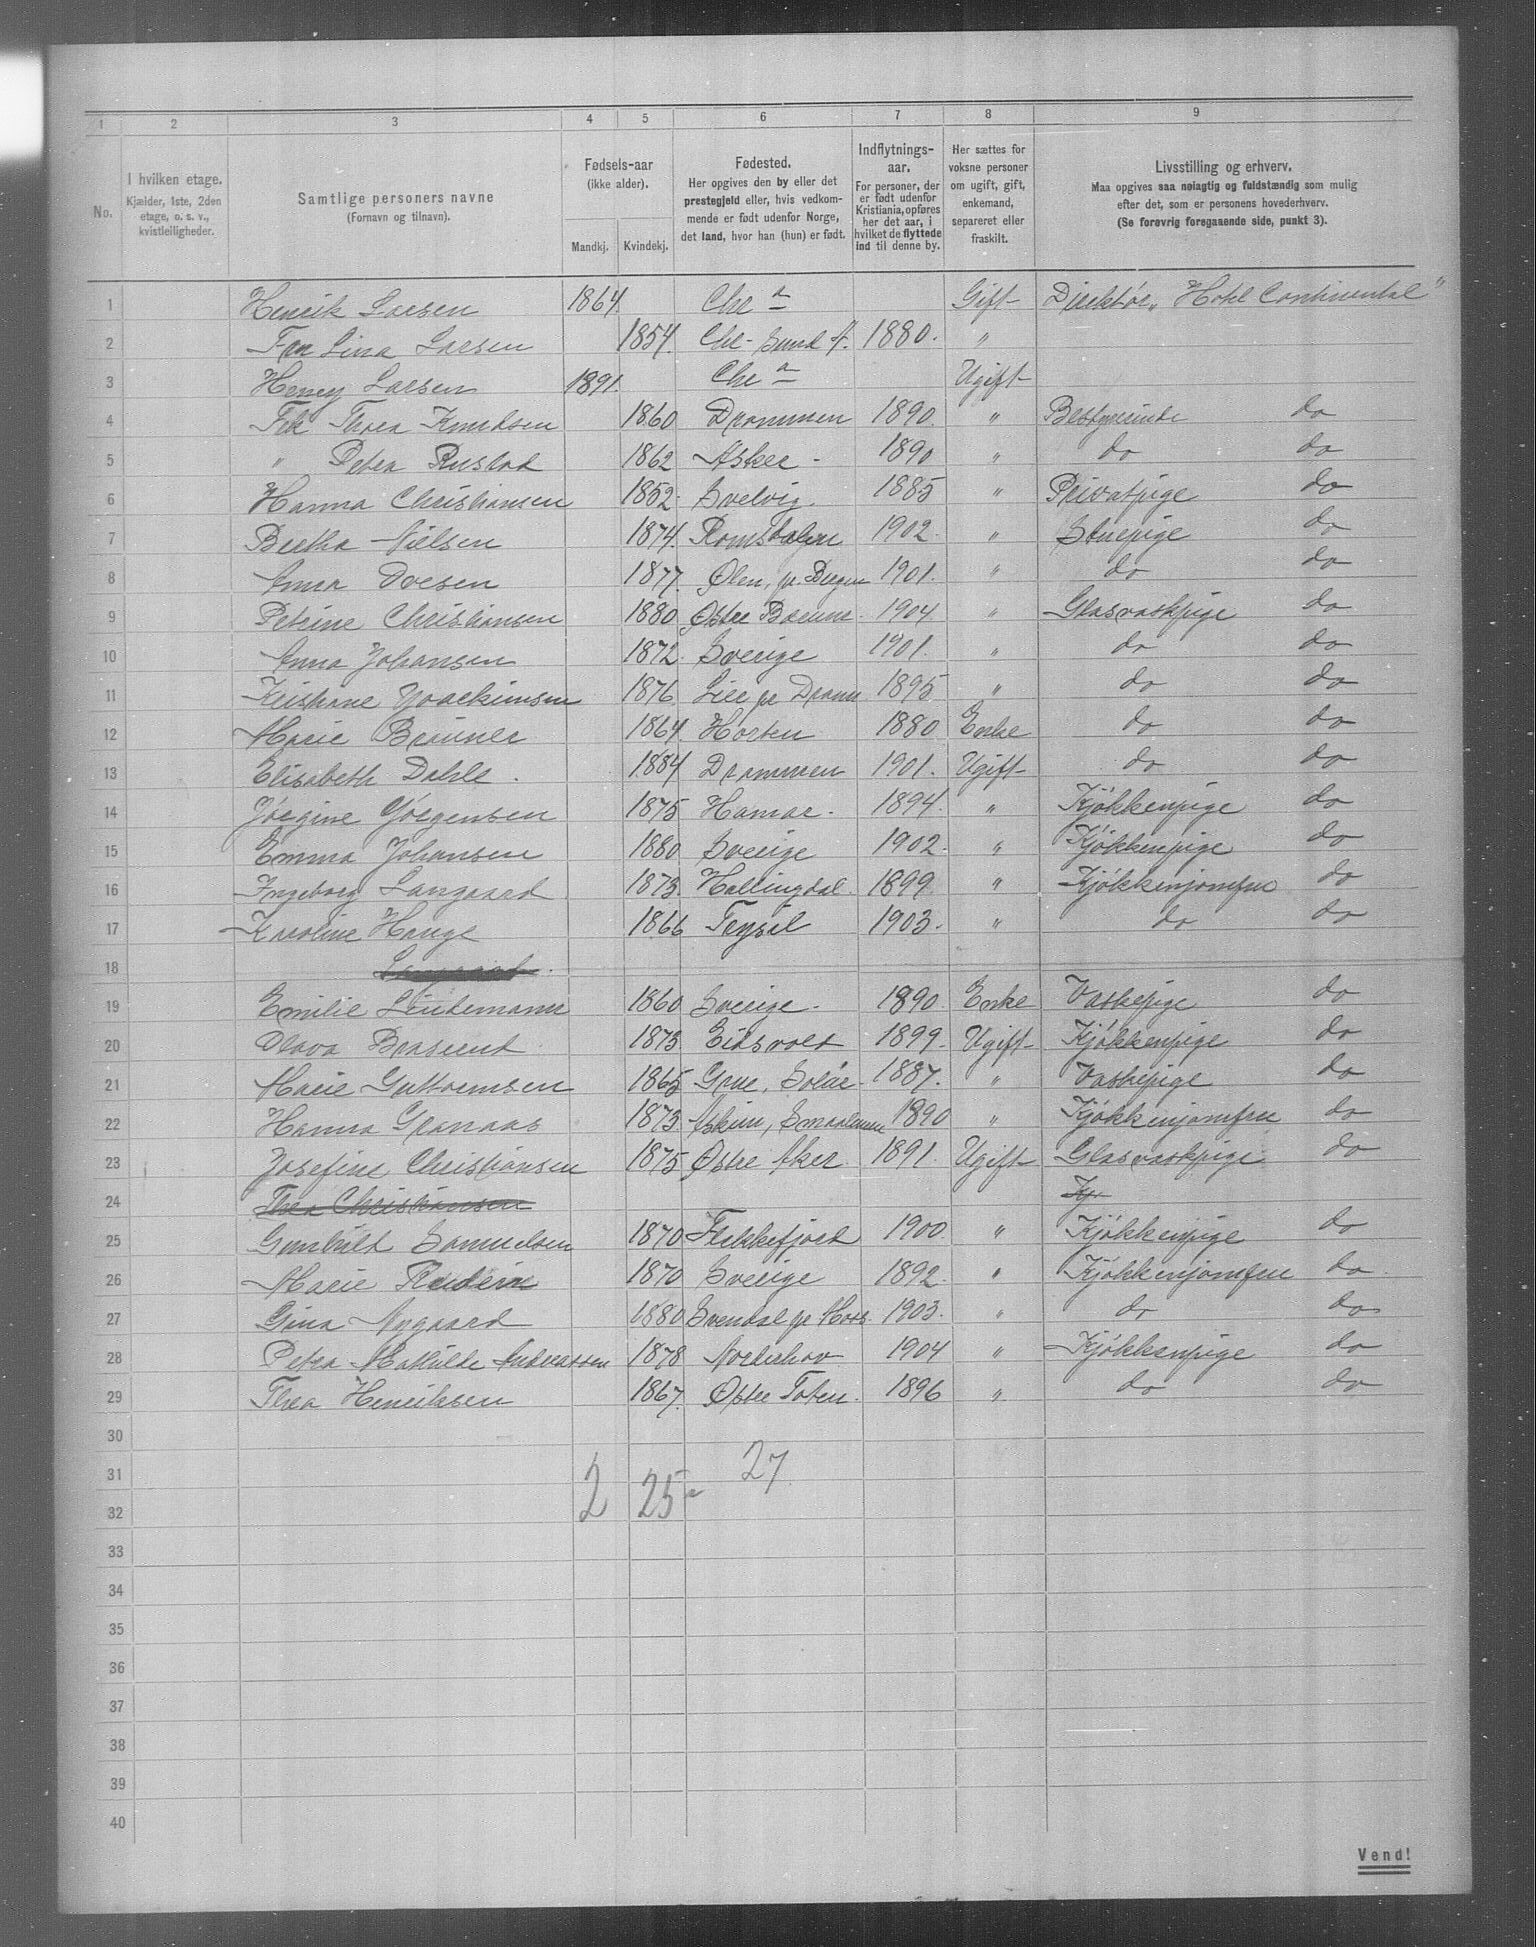 1 2 3 4 5 6 7 8 9
No. I hvilken etage. Kjælder, 1ste, 2den etage, o. s. v., kvistleiligheder. Samtlige personers navne (Fornavn og tilnavn). Fødsels-aar (ikke alder). Mandkj. Kvindekj. Fødested. Her opgives den by eller det prestegjeld eller, hvis vedkommende er født udenfor Norge, det land, hvor han (hun) er født. Indflytnings-aar. For personer, der er født udenfor Kristiania, opføres her det aar, i hvilket de flyttede ind til denne by. Her sættes for voksne personer om ugift, gift, enkemand, separeret eller fraskilt. Livsstilling og erhverv. Maa opgives saa nøiagtig og fuldstændig som mulig efter det, som er personens hovederhverv. (Se forøvrig foregaaende side, punkt 3).
1 Henrik Larsen 1864. Chr a Gift Direktør „Hotel Continental"
2 Fru Lina Larsen 1854. Chr. Sund N. 1880. "
3 Henry Larsen 1891. Chr a Ugift
4 Frk Thora Knudsen 1860 Drammen 1890. " Bestyrerinde do
5 " Petra Rustad 1862 Asker - 1890 " do do
6 Hanna Christiansen 1852. Svelvig. 1885 " Privatpige do
7 Bertha Nielsen 1874. Romsdalen 1902. " Stuepige do
8 Anna Iversen 1877. Ølen, pr. Bergen 1901. " do do
9 Petrine Christiansen 1880 Østre Bærum. 1904 " Glasvaskpige do
10 Anna Johansen 1872. Sverige 1901. " do do
11 Kristiane Joackimsen 1876. Lier pr Dramn 1895 " do do
12 Marie Brauner 1864. Horten 1880 Enke do do
13 Elisabeth Dahle. 1884 Drammen 1901. Ugift do do
14 Jørgine Jørgensen 1875 Hamar. 1894. " Kjøkkenpige do
15 Emma Johansen 1880 Sverige 1902. " Kjøkkenpige do
16 Ingeborg Langaard 1873. Hallingdal. 1899 " Kjøkkenjomfru do
17 Karoline Hauge 1866 Trysil 1903. " do do
18 Langaard.
19 Emilie Lindemann 1860 Sverige. 1890 Enke Vaskepige do
20 Olava Brasrud 1873. Eidsvold 1899. Ugift Kjøkkenpige do
21 Marie Guttormsen 1865 Grue, Solør. 1887. " Vaskepige do
22 Hanna Granaas 1873. Askim, Smaalenene 1890 " Kjøkkenjomfru do
23 Josefine Christiansen 1875 Østre Aker 1891. Ugift Glasvaskpige do
24 Thea Christiansen Kj
25 Gunhild Samuelsen 1870 Flekkefjord 1900. " Kjøkkenpige do
26 Marie 1870 Sverige 1892. " Kjøkkenjomfru do.
27 Gina Nygaard 1880 Svendal pr Moss. 1903. " do do
28 Petra Mathilde Andreassen 1878 Norderhov 1904 " Kjøkkenpige do
29 Thea Henriksen 1867. Østre Toten. 1896 " do do
30
31 27
32 2 25
33
34
35
36
37
38
39
40
Vend!